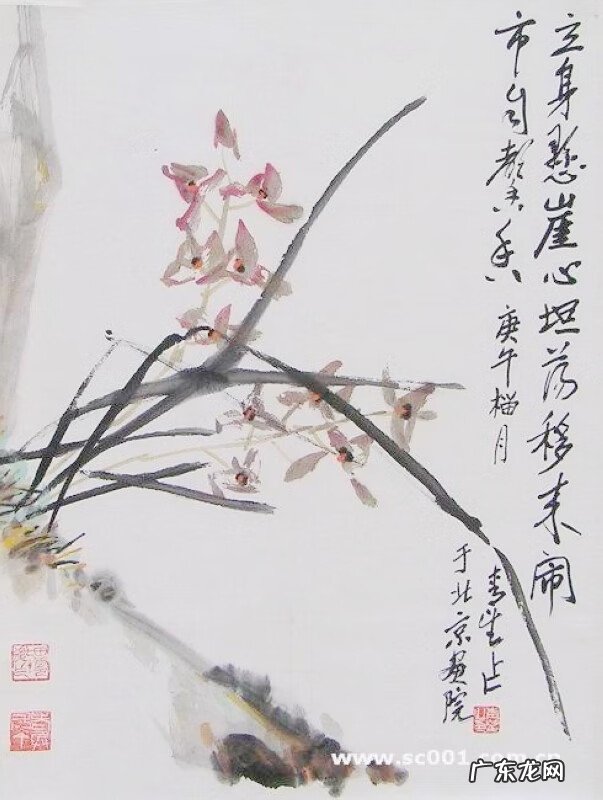 立身悬崖心坦荡移来闹
市自馨香 庚午榴月
于北京画院
www.sc001.com.cn
广东龙网